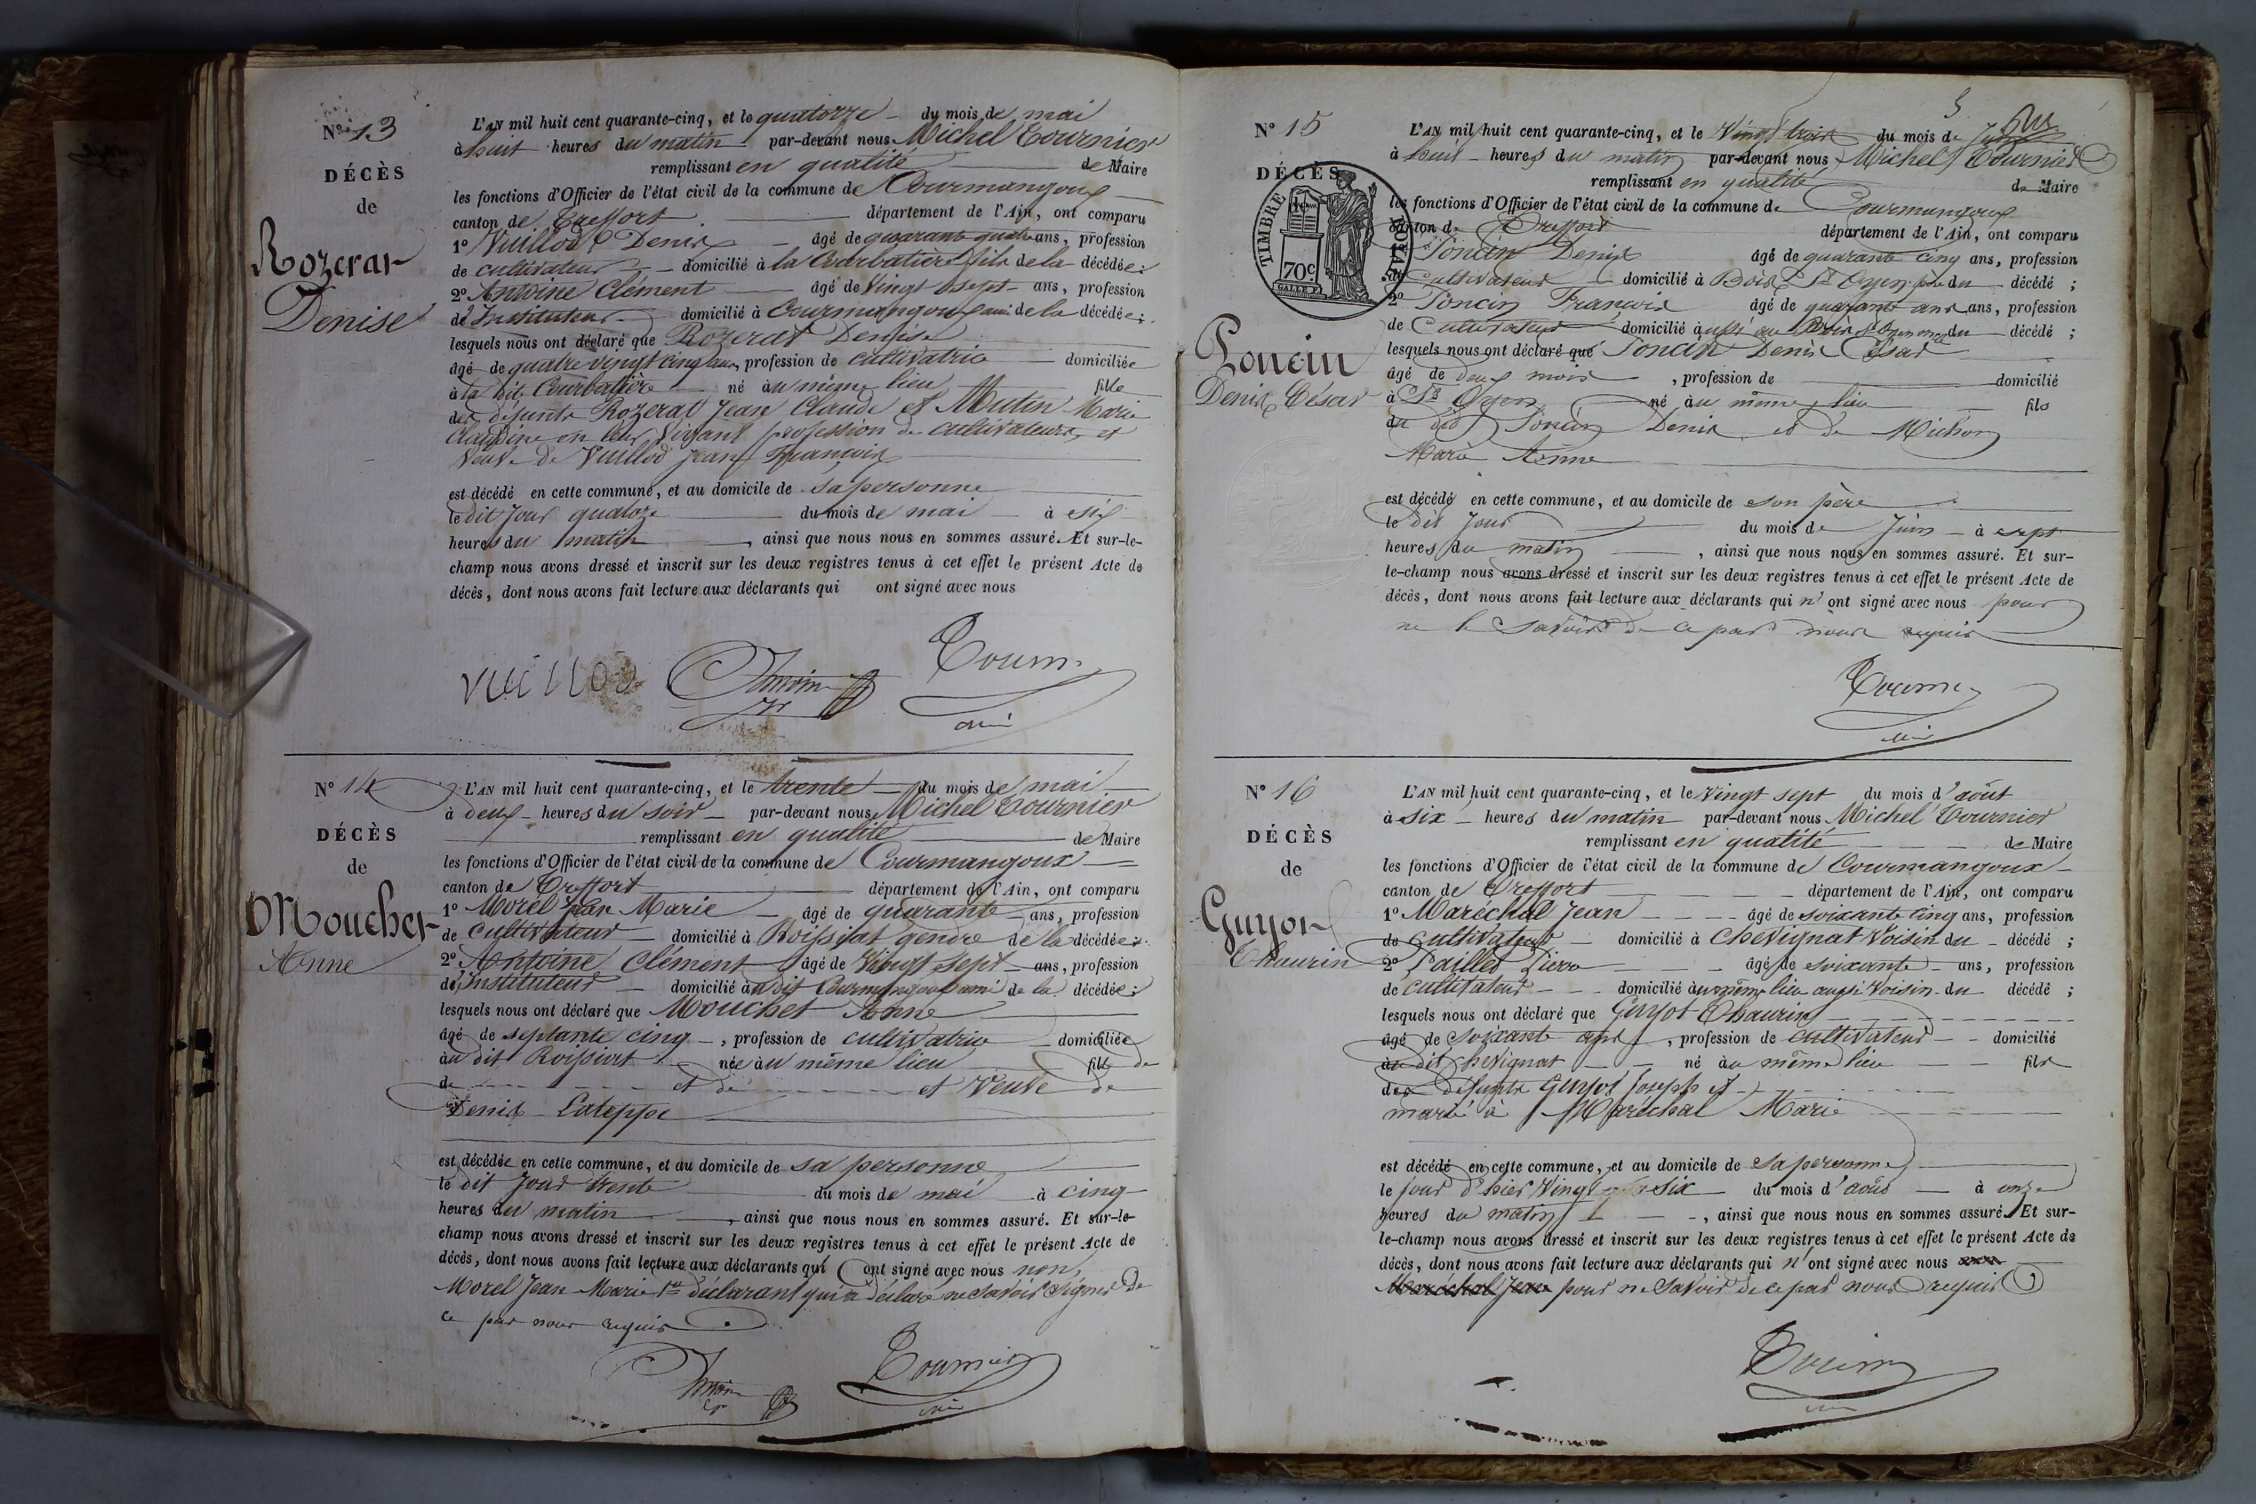 N° 13
DÉCÈS
de
Rozerat
Denise
L'AN mil huit cent quarante-cinq, et le quatorze du mois de mai
à huit heures du matin par-devant nous Michel Tournier
remplissant en qualité de Maire
les fonctions d'Officier de l'état civil de la commune de Courmangoux
canton de Treffort département de l'Ain, ont comparu
1° Vuillod Denis âgé de quarante quatre ans, profession
de cultivateur domicilié à la Courbatière fils de la décédée;
2° Antoine Clément âgé de vingt sept ans, profession
d'Instituteur domicilié à Courmangoux ami de la décédée;
lesquels nous ont déclaré que Rozerat Denise
âgé de quatre vingt cinq ans, profession de cultivatrice domiciliée
à la dit Courbatière né au même lieu fille
des défunts Rozerat Jean Claude et Mutin Marie
Claudine en leur vivant profession de cultivateurs et
veuve de Vuillod Jean François
est décédé en cette commune, et au domicile de sa personne
le dit jour quatorze du mois de mai à six
heures du matin, ainsi que nous nous en sommes assuré. Et sur-le-
champ nous avons dressé et inscrit sur les deux registres tenus à cet effet le présent Acte de
décès, dont nous avons fait lecture aux déclarants qui ont signé avec nous
Vuillod Antoine Tournier
N° 14
DÉCÈS
de
Mouchet
Anne
L'AN mil huit cent quarante-cinq, et le trente du mois de mai
à deux heures du soir par-devant nous Michel Tournier
remplissant en qualité de Maire
les fonctions d'Officier de l'état civil de la commune de Courmangoux
canton de Treffort département de l'Ain, ont comparu
1° Morel Jean Marie âgé de quarante ans, profession
de cultivateur domicilié à Roissiat gendre de la décédée;
2° Antoine Clément âgé de vingt sept ans, profession
d'Instituteur domicilié au dit Courmangoux ami de la décédée;
lesquels nous ont déclaré que Mouchet Anne
âgé de septante cinq, profession de cultivatrice domiciliée
au dit Roissiat née au même lieu fille de
de et de et veuve de
Denis Lateppe
est décédée en cette commune, et au domicile de sa personne
le dit jour trente du mois de mai à cinq
heures du matin, ainsi que nous nous en sommes assuré. Et sur-le-
champ nous avons dressé et inscrit sur les deux registres tenus à cet effet le présent Acte de
décès, dont nous avons fait lecture aux déclarants qui ont signé avec nous non,
Morel Jean Marie 1er déclarant qui a déclaré ne savoir signer de
ce par nous requis
Antoine Tournier
N° 15
DÉCÈS
TIMBRE ROYAL
70c
Poncin
Denis César
L'AN mil huit cent quarante-cinq, et le vingt trois du mois de Juin
à huit heures du matin par-devant nous Michel Tournier
remplissant en qualité de Maire
les fonctions d'Officier de l'état civil de la commune de Courmangoux
canton de Treffort département de l'Ain, ont comparu
1° Poncin Denis âgé de quarante cinq ans, profession
de cultivateur domicilié à Bois St Oyen père du décédé;
2° Poncin François âgé de quarante ans ans, profession
de Cultivateur domicilié aussi au Bois St Oyen oncle du décédé;
lesquels nous ont déclaré que Poncin Denis César
âgé de deux mois, profession de domicilié
à St Oyen né au même lieu fils
du dit Poncin Denis et de Michon
Marie Anne
est décédé en cette commune, et au domicile de son père
le dit jour du mois de Juin à sept
heures du matin, ainsi que nous nous en sommes assuré. Et sur-
le-champ nous avons dressé et inscrit sur les deux registres tenus à cet effet le présent Acte de
décès, dont nous avons fait lecture aux déclarants qui n'ont signé avec nous pour
ne le savoir de ce par nous requis
Tournier
N° 16
DÉCÈS
de
Guyot
Thaurin
L'AN mil huit cent quarante-cinq, et le vingt sept du mois d'août
à six heures du matin par-devant nous Michel Tournier
remplissant en qualité de Maire
les fonctions d'Officier de l'état civil de la commune de Courmangoux
canton de Treffort département de l'Ain, ont comparu
1° Maréchal Jean âgé de soixante cinq ans, profession
de cultivateur domicilié à Chevignat voisin du décédé;
2° Paillet Pierre âgé de soixante ans, profession
de cultivateur domicilié au même lieu aussi voisin du décédé;
lesquels nous ont déclaré que Guyot Thaurin
âgé de soixante ans, profession de cultivateur domicilié
au dit Chevignat né au même lieu fils
des défunts Guyot Joseph et
marié à Maréchal Marie
est décédé en cette commune, et au domicile de sa personne
le jour d'hier vingt six du mois d'août à onze
heures du matin, ainsi que nous nous en sommes assuré. Et sur-
le-champ nous avons dressé et inscrit sur les deux registres tenus à cet effet le présent Acte de
décès, dont nous avons fait lecture aux déclarants qui n'ont signé avec nous
Maréchal Jean pour ne savoir de ce par nous requis
Tournier